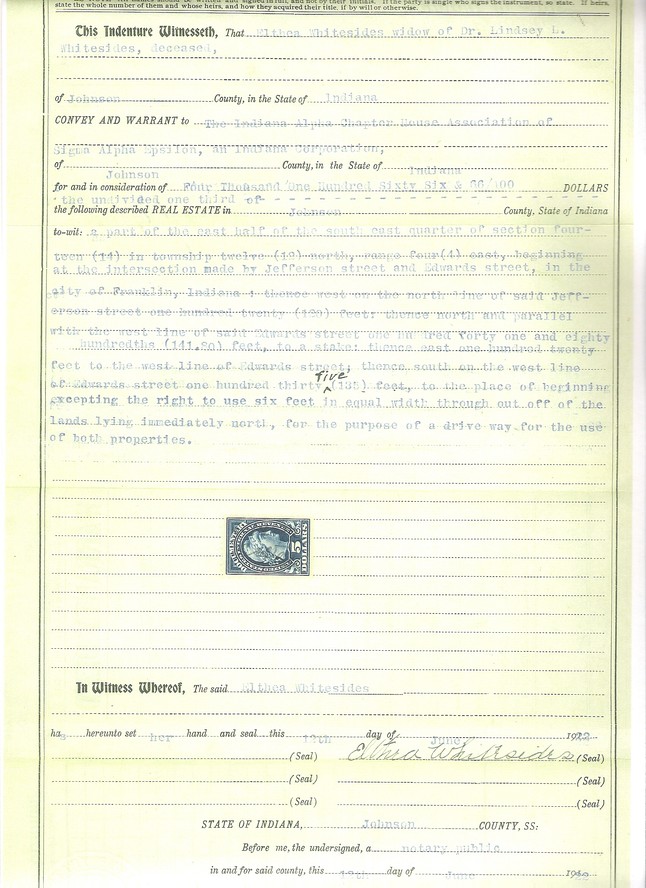 state the whole number of them and whose heirs, and how they acquired their title, if by will or otherwise.
This Indenture Witnesseth, That Elthea Whitesides widow of Dr. Lindsey L.
Whitesides, deceased,
of Johnson County, in the State of Indiana
CONVEY AND WARRANT to The Indiana Alpha Chapter House Association of
Sigma Alpha Epsilon, an Indiana Corporation,
of Johnson County, in the State of Indiana
for and in consideration of Four Thousand One Hundred Sixty Six & 66/100 DOLLARS
the undivided one third of
the following described REAL ESTATE in Johnson County, State of Indiana
to-wit: a part of the east half of the south east quarter of section four-
teen (14) in township twelve (12) north, range four(4) east, beginning
at the intersection made by Jefferson street and Edwards street, in the
city of Franklin, Indiana ; thence west on the north line of said Jeff-
erson street one hundred twenty (120) feet: thence north and parallel
with the west line of said Edwards street one hundred forty one and eighty
hundredths (141.80) feet, to a stake: thence east one hundred twenty
feet to the west line of Edwards street; thence south on the west line
of Edwards street one hundred thirty five (135) feet, to the place of beginning
excepting the right to use six feet in equal width through out off of the
lands lying immediately north, for the purpose of a drive way for the use
of both properties.
DOCUMENTARY
5
DOLLARS
In Witness Whereof, The said Elthea Whitesides
has hereunto set her hand and seal this day of June 1922
Elthea Whitesides (Seal)
(Seal)
(Seal) (Seal)
(Seal) (Seal)
STATE OF INDIANA, Johnson COUNTY, SS:
Before me, the undersigned, a notary public
in and for said county, this day of June